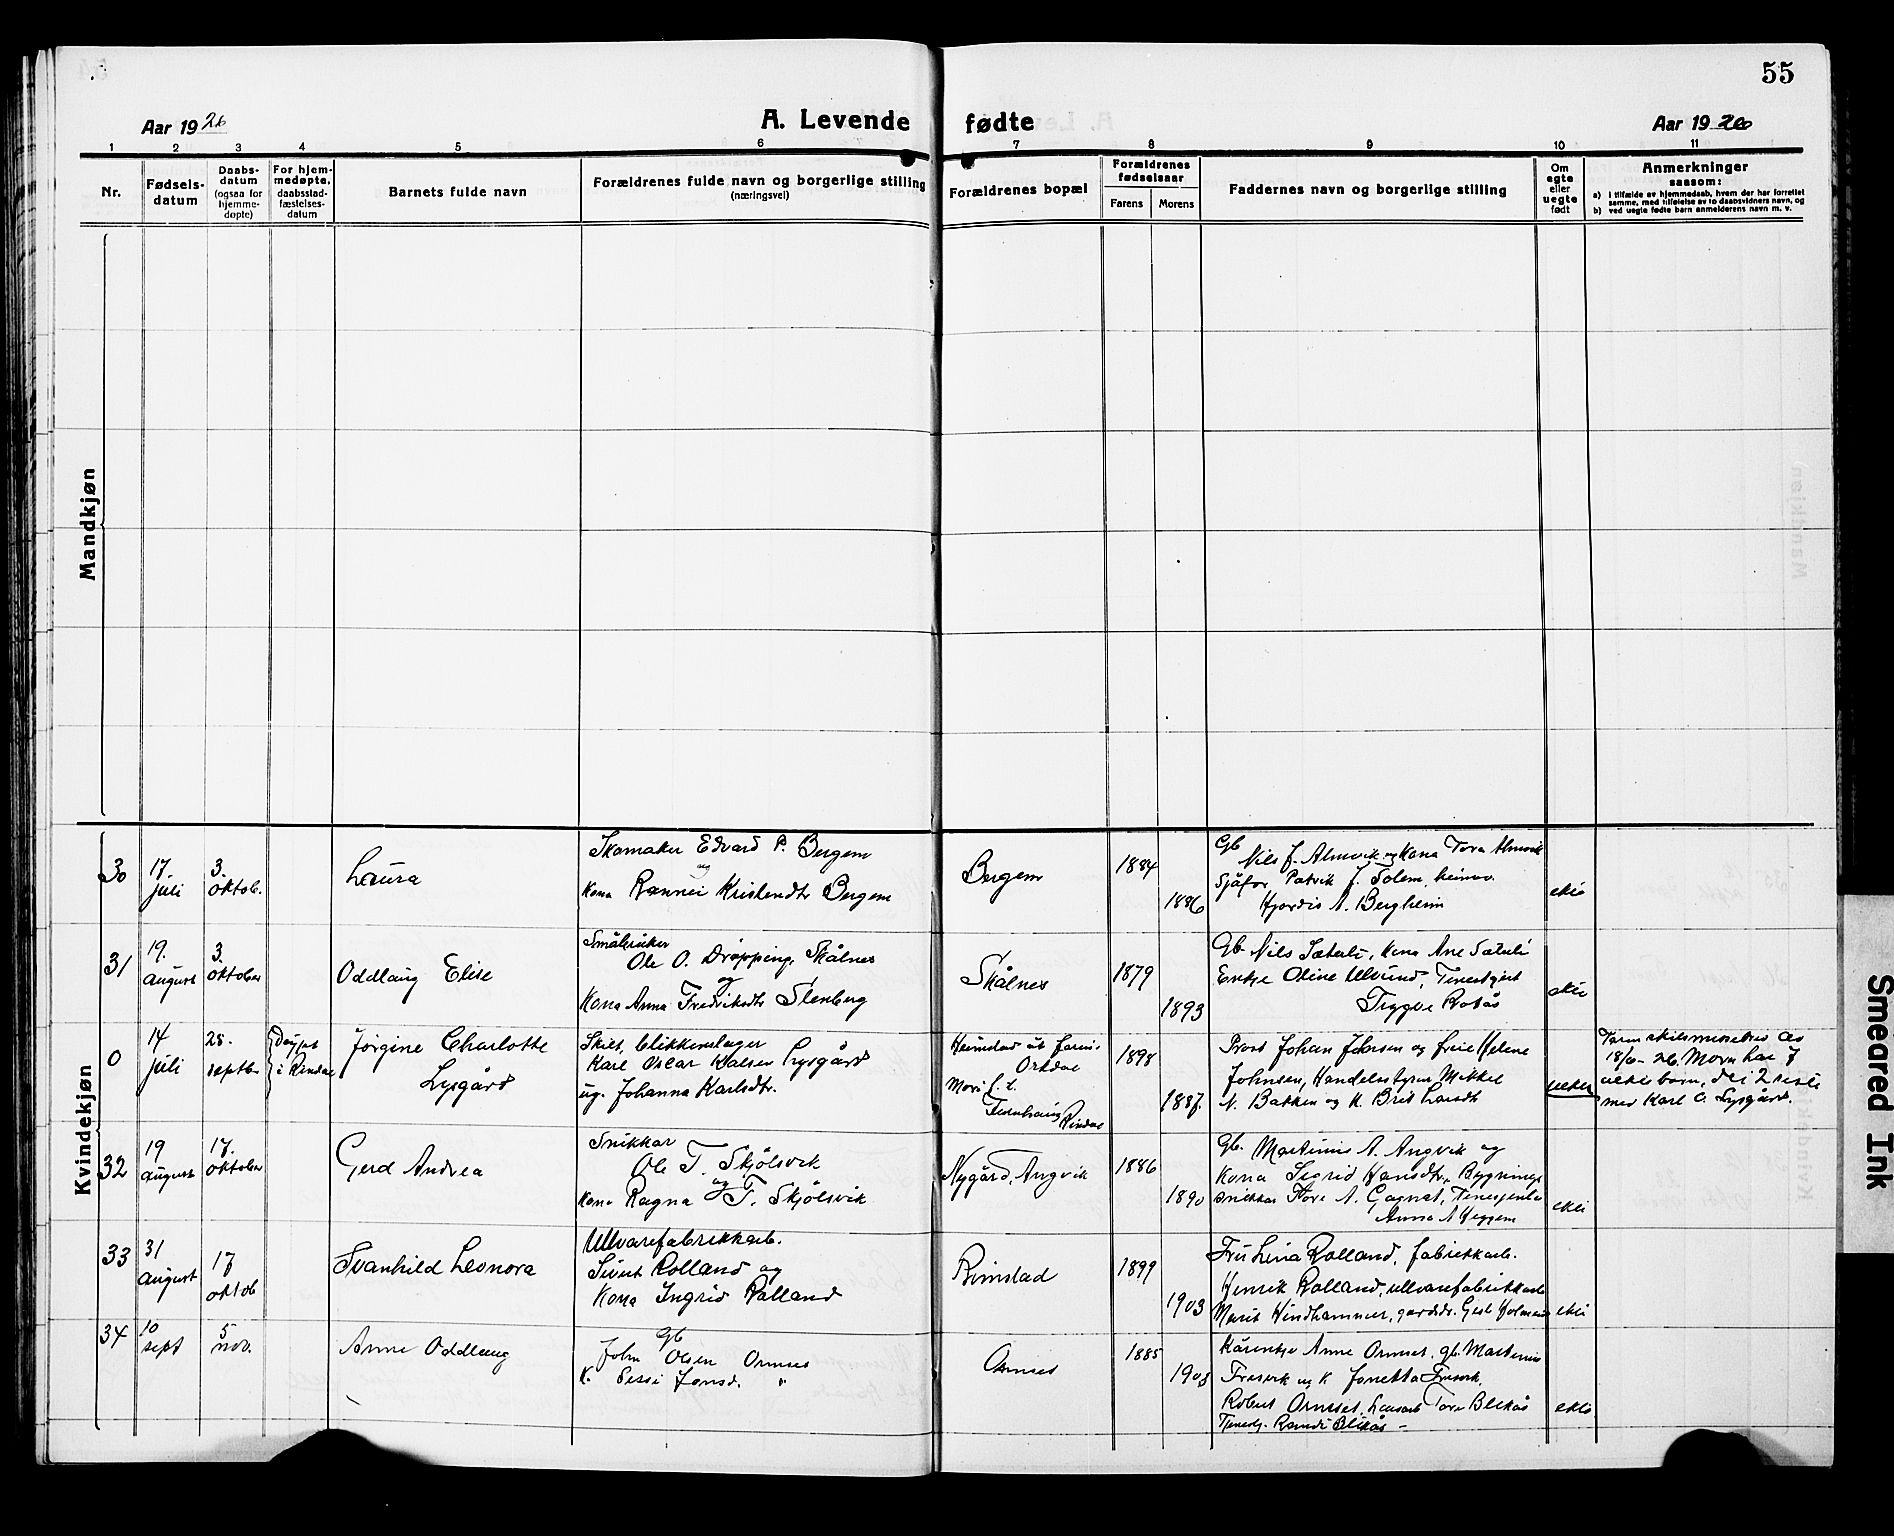 55
Aar 1926
A. Levende fødte
Aar 1926
1 2 3 4 5 6 7 8 9 10 11
Nr.
Fødsels-
datum
Daabs-
datum
(ogsaa for
hjemme-
døpte)
For hjem-
medøpte,
daabsstad-
fæstelses-
datum
Barnets fulde navn
Forældrenes fulde navn og borgerlige stilling
(næringsvei)
Forældrenes bopæl
Forældrenes
fødselsaar
Farens Morens
Faddernes navn og borgerlige stilling
Om
egte
eller
uegte
født
Anmerkninger
saasom:
a) i tilfælde av hjemmedaab, hvem der har forrettet
samme, med tilføielse av to daabsvidners navn, og
b) ved uegte fødte barn anmelderens navn m. v.
Mandkjøn
Kvindekjøn
30
17.
juli
3.
oktob.
Laura
Skomaker Edvard P. Bergem
og
Kona Rannei Kristendtr Bergem
Bergem
1884
1886
Gb
Nils J. Almvik og Kona Tora Almvik
Sjåfør Patrik J. Solem, heimev.
Hjørdis A. Bergheim
ekte
31
19.
august
3.
oktober
Oddlaug Elise
Småbruker
Ole O. Drøpping, Skålnes
og
Kona Anna Fredriksdtr Stenberg
Skålnes
1879
1893
Gb. Nils Sæterli, Kona Ane Sæterli
Enkje Oline Ulvund, Tenestgjut
Trygve Røtås
ekte
0
14
juli
25.
septbr
Døypt
i Rindal
Jörgine Charlotte
Lysgård
Skilt, blikkenslager
Karl Oscar Karlsen Lysgård
ug. Johanna Karlsdtr.
Heimstad åt faren:
Orkdal
Mori f. t.
Rindal
1898
1887.
Prost Johan Johnsen og frue Helene
Johnsen, Handelsstyrar Mikkel
N. Bakken og K. Brit Larsdtr
uekte
18/6-26. Mora har 7
uekte barn, dei 2 siste
med Karl O. Lysgård.
32
19
august
17.
oktober
Gerd Andrea
Snikkar
Ole T. Skjølsvik
og
Kona Ragna T. Skjølsvik
Nygård, Angvik
1886
1890
Gb. Martinus A. Angvik og
Kona Sigrid Hansdtr, Bygnings-
snikkar Tore A. Gagnat, Tenestjenta
Anna A Heggem
ekte
33
31
august
17
oktob
Svanhild Leonora
Ullvarefabrikkarb.
Sivert Rolland og
Kona Ingrid Rolland
Rimstad
1899
1903
Fru Lina Rolland, fabrikkarb.
Henrik Rolland, ullvarefabrikkarb
Marit Hindhammer, gardsdr. Gest Holmeide
ekte
34
10
sept
5
nov.
Anne Oddlaug
Gb
John Olsen Ormset
K. Sessi Jonsd. "
Ormset
1885
1903
Kårenkje Anne Ormset, gb. Martinus
Fresvik og K Jonetta Fresvik,
Robert Ormset, Lausarb Tore Blekås
Tjenestj. Randi Blekås –
ekte
Smeared Ink